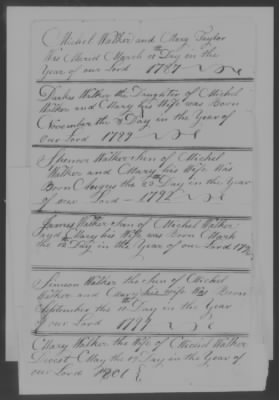 Michel Walker and Mary Taylor
Was Maried March 15th Day in the
Year of our Lord 1787
Darkes Walker the Daughter of Michel
Walker and Mary his Wife was Born
November the 3 Day in the Year of
our Lord 1789
Thomas Walker Sun of Michel
Walker and Mary his Wife Was
Born Augus the 23 Day in the Year
of our Lord - 1792
James Walker Sun of Michel Walker
and Mary his Wife was Born March
the 12th Day in the Year of our Lord
Simeon Walker the Sun of Michel
Walker and Mary his wife Was Born
September the 11 Day in the Year
of our Lord 1799
Mary Walker the Wife of Michel Walker
Decest May the 19 Day in the Year of
our Lord 1801